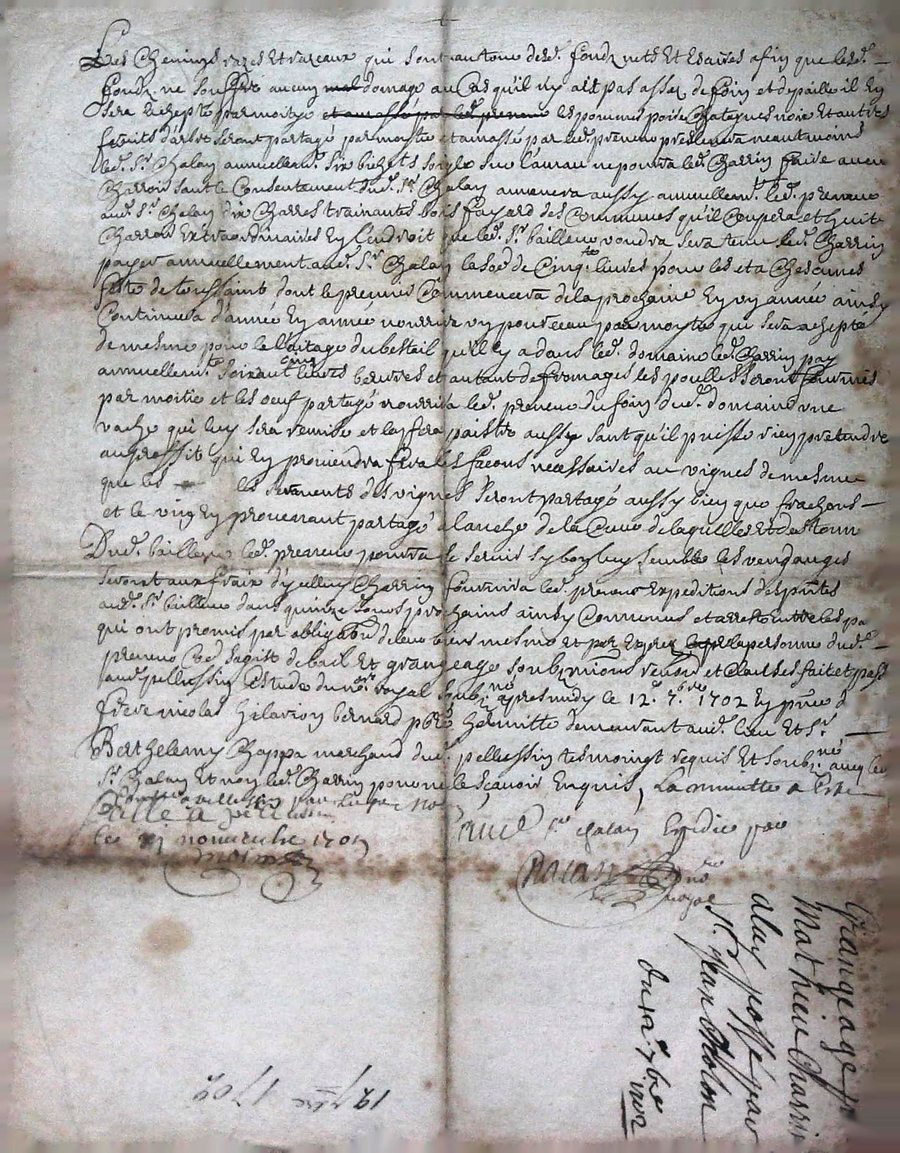 Les Chemins razes Et razeaux qui sont autour desd. fondz nets Et Esaives afin que lesd.
fondz ne souffre aucun mal domage au Cas qu'il ny aie pas assez de foin et de paille il En
sera achepté par moitye et amassé par led. preneur les pommes poire Chateignes noix Et autres
fruits d'arbre seront partagé par moytie et amassé par led. preneur prelevera neautmoins
led. Sr. Chalan annuellemt. six bichets seigle sur ne pourra led. Charrin faire aucun
Charroir sant le Consentement dud. Sr. Chalan amenera aussy annuellemt. led. preneur
aud. Sr. Chalan dix Charres trainantes bois fayard des Communes qu'il Coupera et huit
Charroir Extraordinaires En l'endroit que led. Sr. bailleur voudra sera tenu led. Charrin
payer annuellement aud. Sr. Chalan la so.e de Cinq livres pour les et a Chascunes
feste de toussaint dont le premier Commencera de la prochaine En un année ainsy
Continuera d'année En année nourrira un pourceau par moytie qui sera achepté
de mesme pour le laitage du bestail qu'il y a dans led. domaine led. Charrin pay
annuellemt. soixant cinq livres beurres et autant de fromages les poulles seront fournies
par moitié et les oeuf partagé nourrira led. preneur du foin dud. domaine une
vache qui luy sera remise et la fera paistre aussy sant qu'il puisse rien pretendre
au proffit qui En proviendra fera les facons necessaires au vignes de mesme
que les les serments des vignes seront partagé aussy bien que
et le vin En provenant partagé a lanche de la Cuve de laquelle Et des
Dud. bailleur led. preneur pourra se servir sy bon luy semble les vendanges
seront aux fraix d'yelluy Charrin fournira led. preneur Expeditions des pntes
aud. Sr. bailleur dans quinze Jours prochains ainsy Convenus et arresté entre les pa
qui ont promis par obligaon de leur biens mesme et par Exprez la personne dud.
preneur led. bail Et grangeage soubzmions renon et Clauses fait et passé
aud. pellussin Estude du nore. royal soubzne. apres midy le 12e. 7bre 1702 En pnce d
frere nicolas hilarion bernard pbre hermitte demeurant aud. lieu Et Sr.
Barthelemy Chappa marchand dud. pellussin tesmoingt requis Et soubzne avec led.
Sr. Chalan Et non led. Charrin pour ne le scavoir Enquis, La minutte a Esté
Conllé a pellussin
le novembre 170
Sr Chalan Expedie par
nre
royal
Grangeage p
Mathieu Charrin
St. Jean Chalan
du 12e 7bre
1702
12 7bre 1702